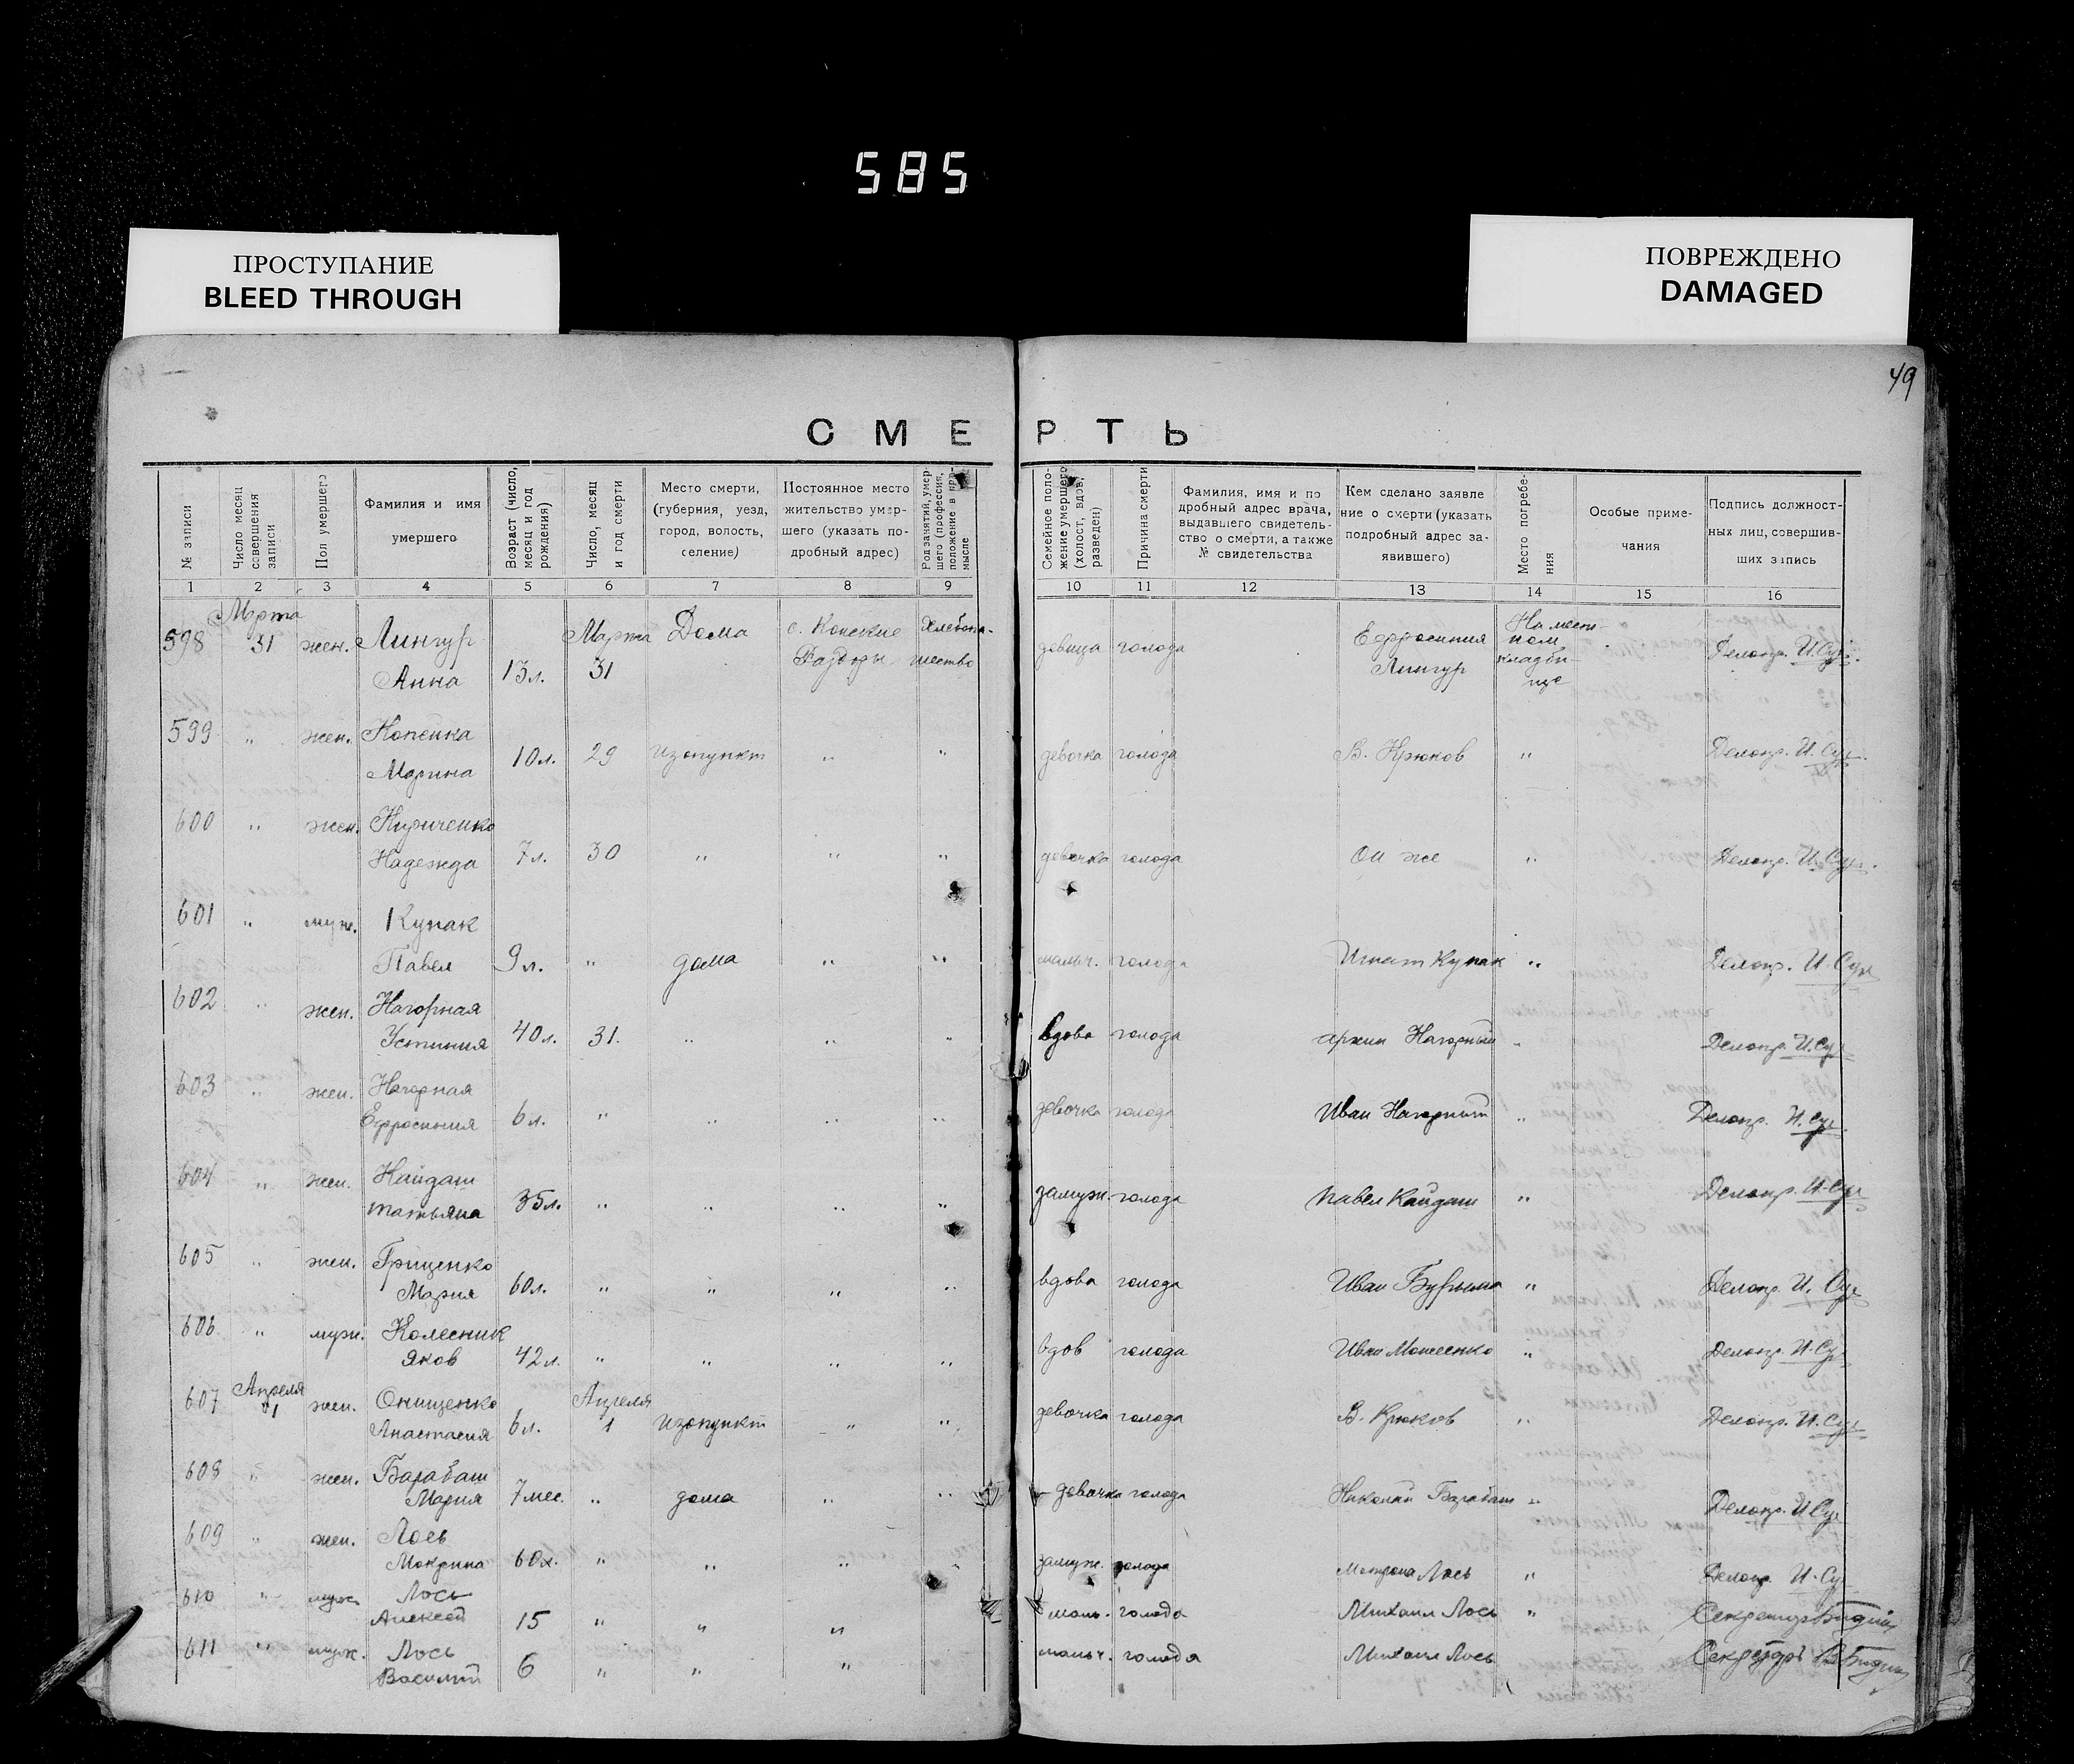 585
ПРОСТУПАНИЕ
BLEED THROUGH
ПОВРЕЖДЕНО
DAMAGED
49
СМЕРТЬ
№ записи
Число месяц совершения записи
Пол умершего
Фамилия и имя умершего
Возраст (число, месяц и год рождения)
Число, месяц и год смерти
Место смерти, (губерния, уезд, город, волость, селение)
Постоянное место жительство умер- шего (указать по- дробный адрес)
Род занятий, умер- шего (профессия, положение в про- мысле
Семейное поло- жение умершего (холост, вдов, разведен)
Причина смерти
Фамилия, имя и по дробный адрес врача, выдавшего свидетель- ство о смерти, а также № свидетельства
Кем сделано заявле ние о смерти (указать подробный адрес за- явившего)
Место погребе- ния
Особые приме- чания
Подпись должност- ных лиц, совершив- ших запись
1 2 3 4 5 6 7 8 9 10 11 12 13 14 15 16
598 Марта 31 жен. Лингур Анна 13 л. Марта 31 Дома с. Конские Раздоры девица голода Ефросиния Лингур На мест- ном кладби- ще Делопр.
599 " жен. Копейка Марина 10 л. 29 изопункт " " девочка голода В. Крюков " Делопр.
600 " жен. Кириченко Надежда 7 л. 30 " " " девочка голода Он же " Делопр.
601 " муж. Купак Павел 9 л. " дома " " мальч. голода Игнат Купак " Делопр.
602 " жен. Нагорная Устиния 40 л. 31. " " " вдова голода Нагорный " Делопр.
603 " жен. Нагорная Ефросиния 6 л. " " " " девочка голода Иван Нагорный " Делопр.
604 " жен. Кайдаш Татьяна 35 л. " " " " замуж. голода Павел Кайдаш " Делопр.
605 " жен. Гриценко Мария 60 л. " " " " вдова голода Иван " Делопр.
606 " муж. Колесник Яков 42 л. " " " " вдов голода Иван " Делопр.
607 Апреля 1 жен. Онищенко Анастасия 6 л. Апреля 1 изопункт " " девочка голода В. Крюков " Делопр.
608 " жен. Барабаш Мария 7 мес. " дома " " девочка голода Николай Барабаш " Делопр.
609 " жен. Лось Мокрина 60 л. " " " " замуж. голода Лось " Делопр.
610 " муж. Лось Алексей 15 " " " мальч. голода Михаил Лось " Секретарь
611 " муж. Лось Василий 6 " " " мальч. голода Михаил Лось Секретарь